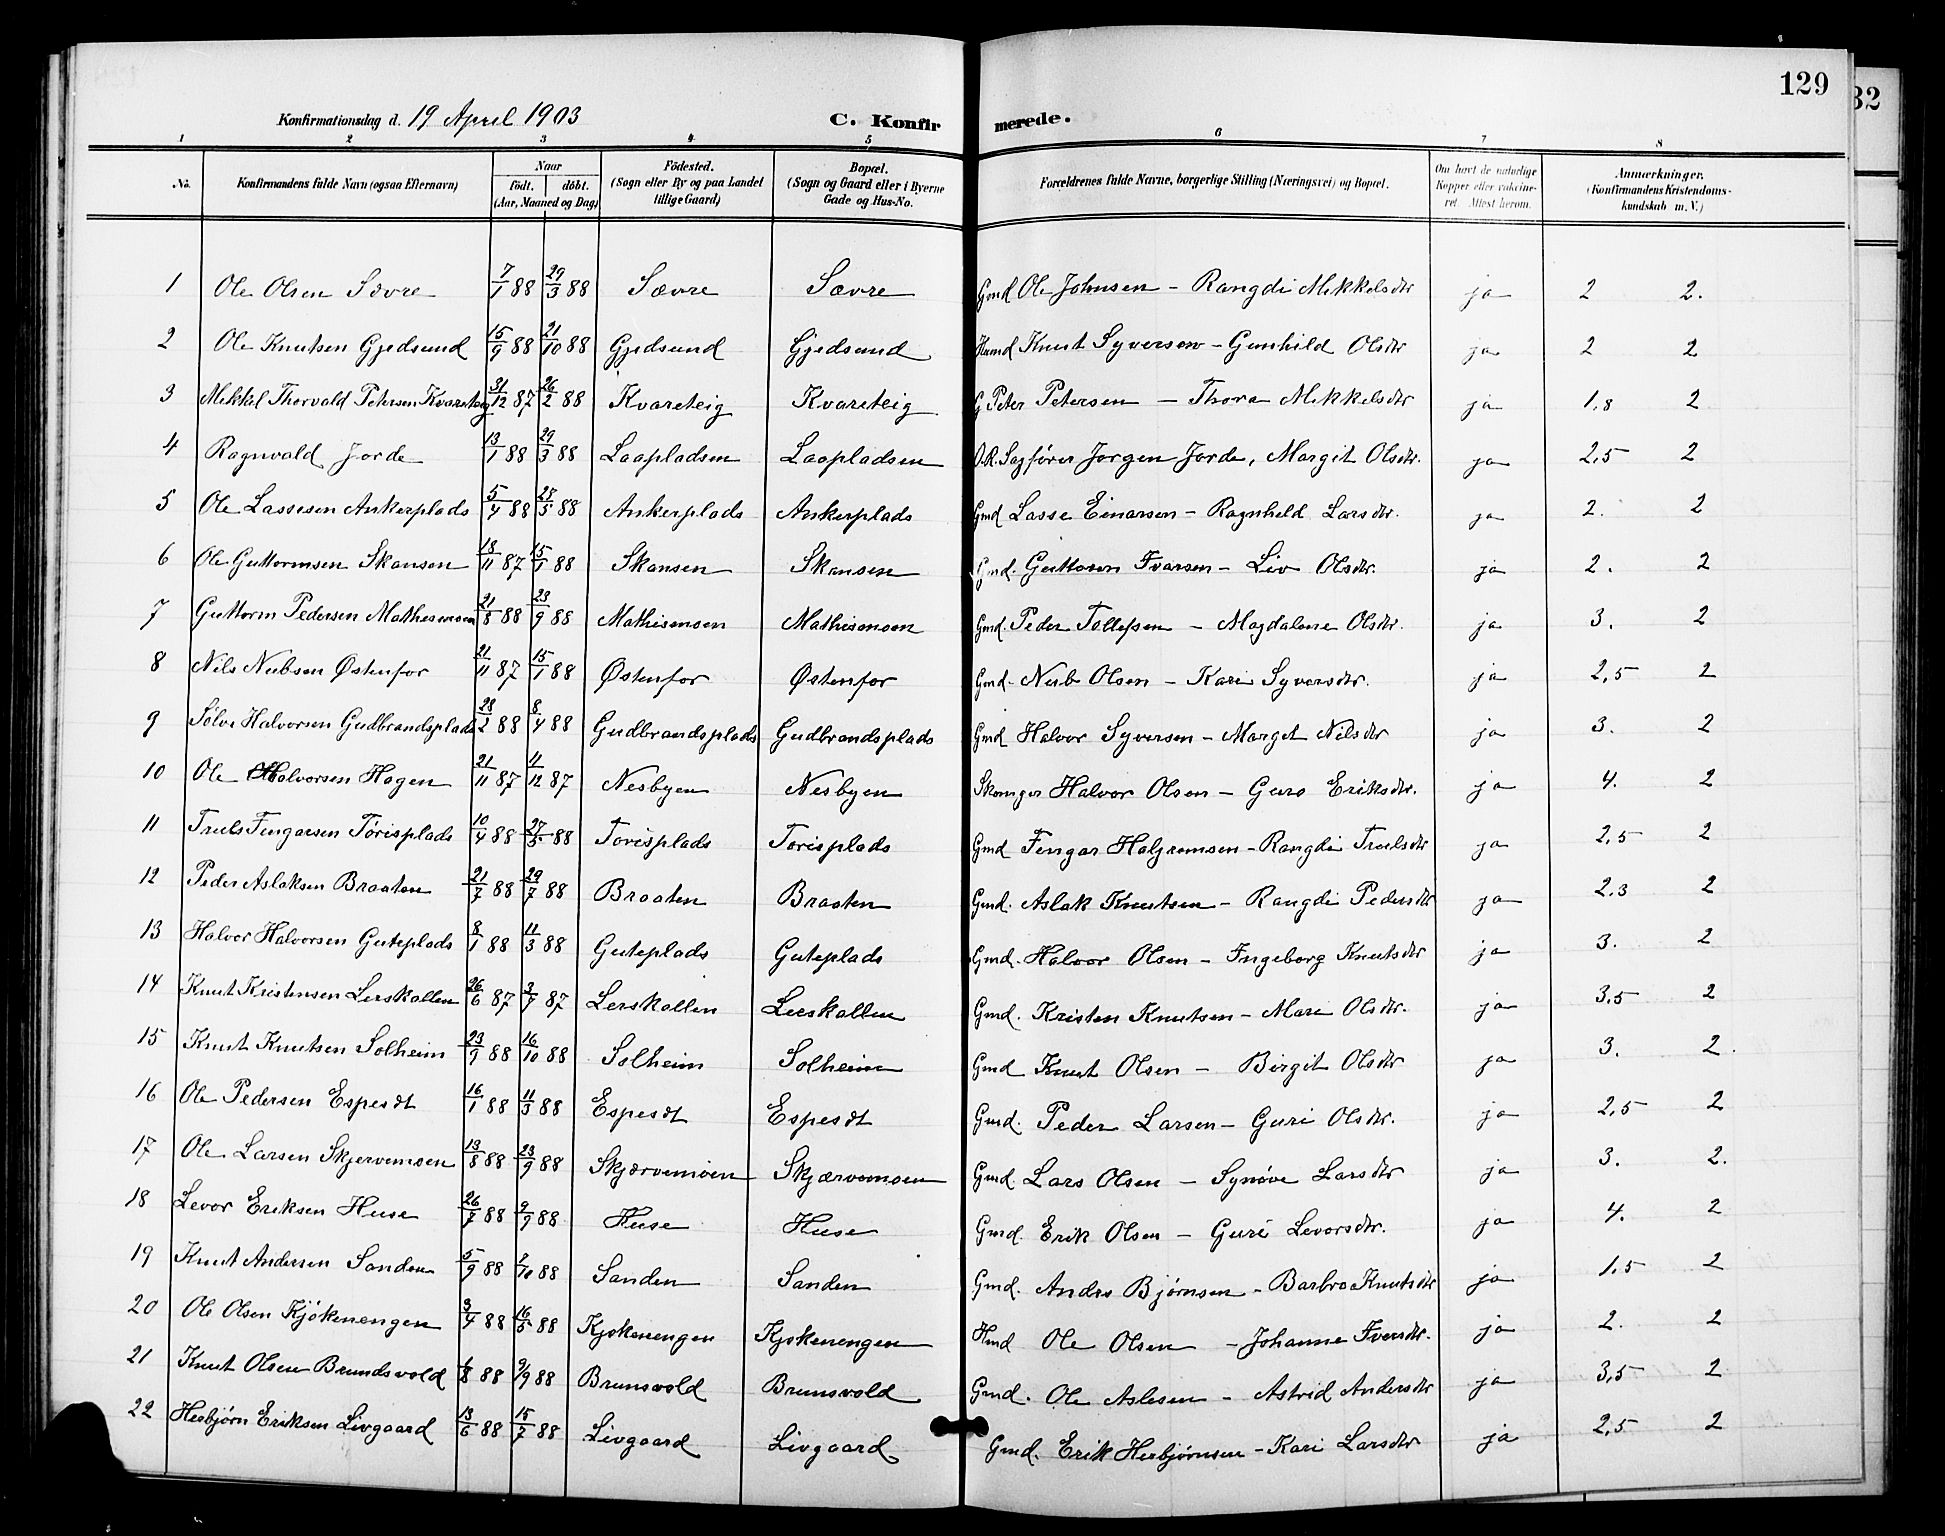 129
32
Konfirmationsdag d. 19 April 1903 C. Konfirmerede.
1 2 3 4 5 6 7 8
No. Konfirmandens fulde Navn (ogsaa Efternavn) Naar födt. döbt. (Aar, Maaned og Dag) Födested. (Sogn eller By og paa Landet tillige Gaard) Bopæl. (Sogn og Gaard eller i Byerne Gade og Hus-No. Forældrenes fulde Navne, borgerlige Stilling (Næringsvei) og Bopæl. Om havt de naturlige Kopper eller vakcineret. Attest herom. Anmærkninger. (Konfirmandens Kristendomskundskab m. V.)
1 Ole Olsen Sævre 7/1 88 29/3 88 Sævre Sævre Gmd Ole Johnsen - Rangdi Mikkelsdtr ja 2 2.
2 Ole Knutsen Gjedsund 15/9 88 21/10 88 Gjedsund Gjedsund Hmd Knut Syversen - Gunhild Olsdtr ja 2 2
3 Mekkel Thorvald Petersen Kvareteig 31/12 87 26/2 88 Kvareteig Kvareteig G Peter Petersen - Thora Mekkelsdtr ja 1,8 2
4 Ragnvald Jorde 13/1 88 29/3 88 Laapladsen Laapladsen O.R. Sagfører Jørgen Jorde, Margit Olsdtr. ja 2,5 2
5 Ole Lassesen Ankerplads 5/4 88 27/5 88 Ankerplads Ankerplads Gmd Lasse Einarsen - Ragnhild Larsdtr. ja 2. 2
6 Ole Guttormsen Skansen 18/11 87 15/1 88 Skansen Skansen Gmd. Guttorm Ivarsen - Liv Olsdtr. ja 2. 2
7 Guttorm Pedersen Mathismoen 21/8 88 23/9 88 Mathismoen Mathismoen Gmd. Peder Tollefsen - Magdalene Olsdtr. ja 3. 2
8 Nils Nubsen Østenfor 21/11 87 15/1 88 Østenfor Østenfor Gmd. Nub Olsen - Kari Syversdtr. ja 2,5 2
9 Sølve Halvorsen Gudbrandsplads 28/2 88 8/4 88 Gudbrandsplads Gudbrandsplads Gmd Halvor Syversen - Margit Nilsdtr ja 3. 2
10 Ole Halvorsen Hagen 21/11 87 11/12 87 Nesbyen Nesbyen Skomger Halvor Olsen - Guro Eriksdtr. ja 4. 2
11 Truls Fingarsen Tørisplads 10/4 88 27/5 88 Torisplads Torisplads Gmd Fingar Halgrimsen - Rangdi Trulsdtr ja 2,5 2
12 Peder Aslaksen Braaten 21/7 88 29/7 88 Braaten Braaten Gmd. Aslak Knutsen - Rangdi Pedersdtr ja 2.3 2
13 Halvor Halvorsen Guteplads 8/1 88 11/3 88 Guteplads Guteplads Gmd. Halvor Olsen - Ingeborg Knutsdtr ja 3. 2
14 Knut Kristensen Lerskallen 26/6 87 3/7 87 Lerskallen Lerskallen Gmd. Kristen Knutsen - Mari Olsdtr. ja 3,5 2
15 Knut Knutsen Solheim 23/9 88 16/10 88 Solheim Solheim Gmd Knut Olsen - Birgit Olsdtr ja 3. 2.
16 Ole Pedersen Espesdt 16/1 88 11/3 88 Espesdt Espesdt Gmd. Peder Larsen - Guri Olsdtr. ja 2,5 2
17 Ole Larsen Skjervemoen 13/8 88 23/9 88 Skjærvemoen Skjærvemoen Gmd. Lars Olsen - Synøve Larsdtr ja 3. 2.
18 Levor Eriksen Huse 26/7 88 9/9 88 Huse Huse Gmd. Erik Olsen - Guri Levorsdtr. ja 4. 2
19 Knut Andersen Sanden 5/9 88 2/10 88 Sanden Sanden Gmd. Andrs Bjørnsen - Barbro Knutsdtr ja 1.5 2
20 Ole Olsen Kjøkenengen 3/4 88 16/5 88 Kjøkenengen Kjøkenengen Hmd Ole Olsen - Johanne Iversdtr. ja 2. 2
21 Knut Olsen Brundsvold 1/8 88 9/9 88 Brunsvold Brunsvold Gmd. Ole Aslesen - Astrid Andersdtr ja 3,5 2
22 Herbjørn Eriksen Livgaard 13/6 88 15/7 88 Livgaard Livgaard Gmd. Erik Herbjørnsen - Kari Larsdtr ja 2,5 2